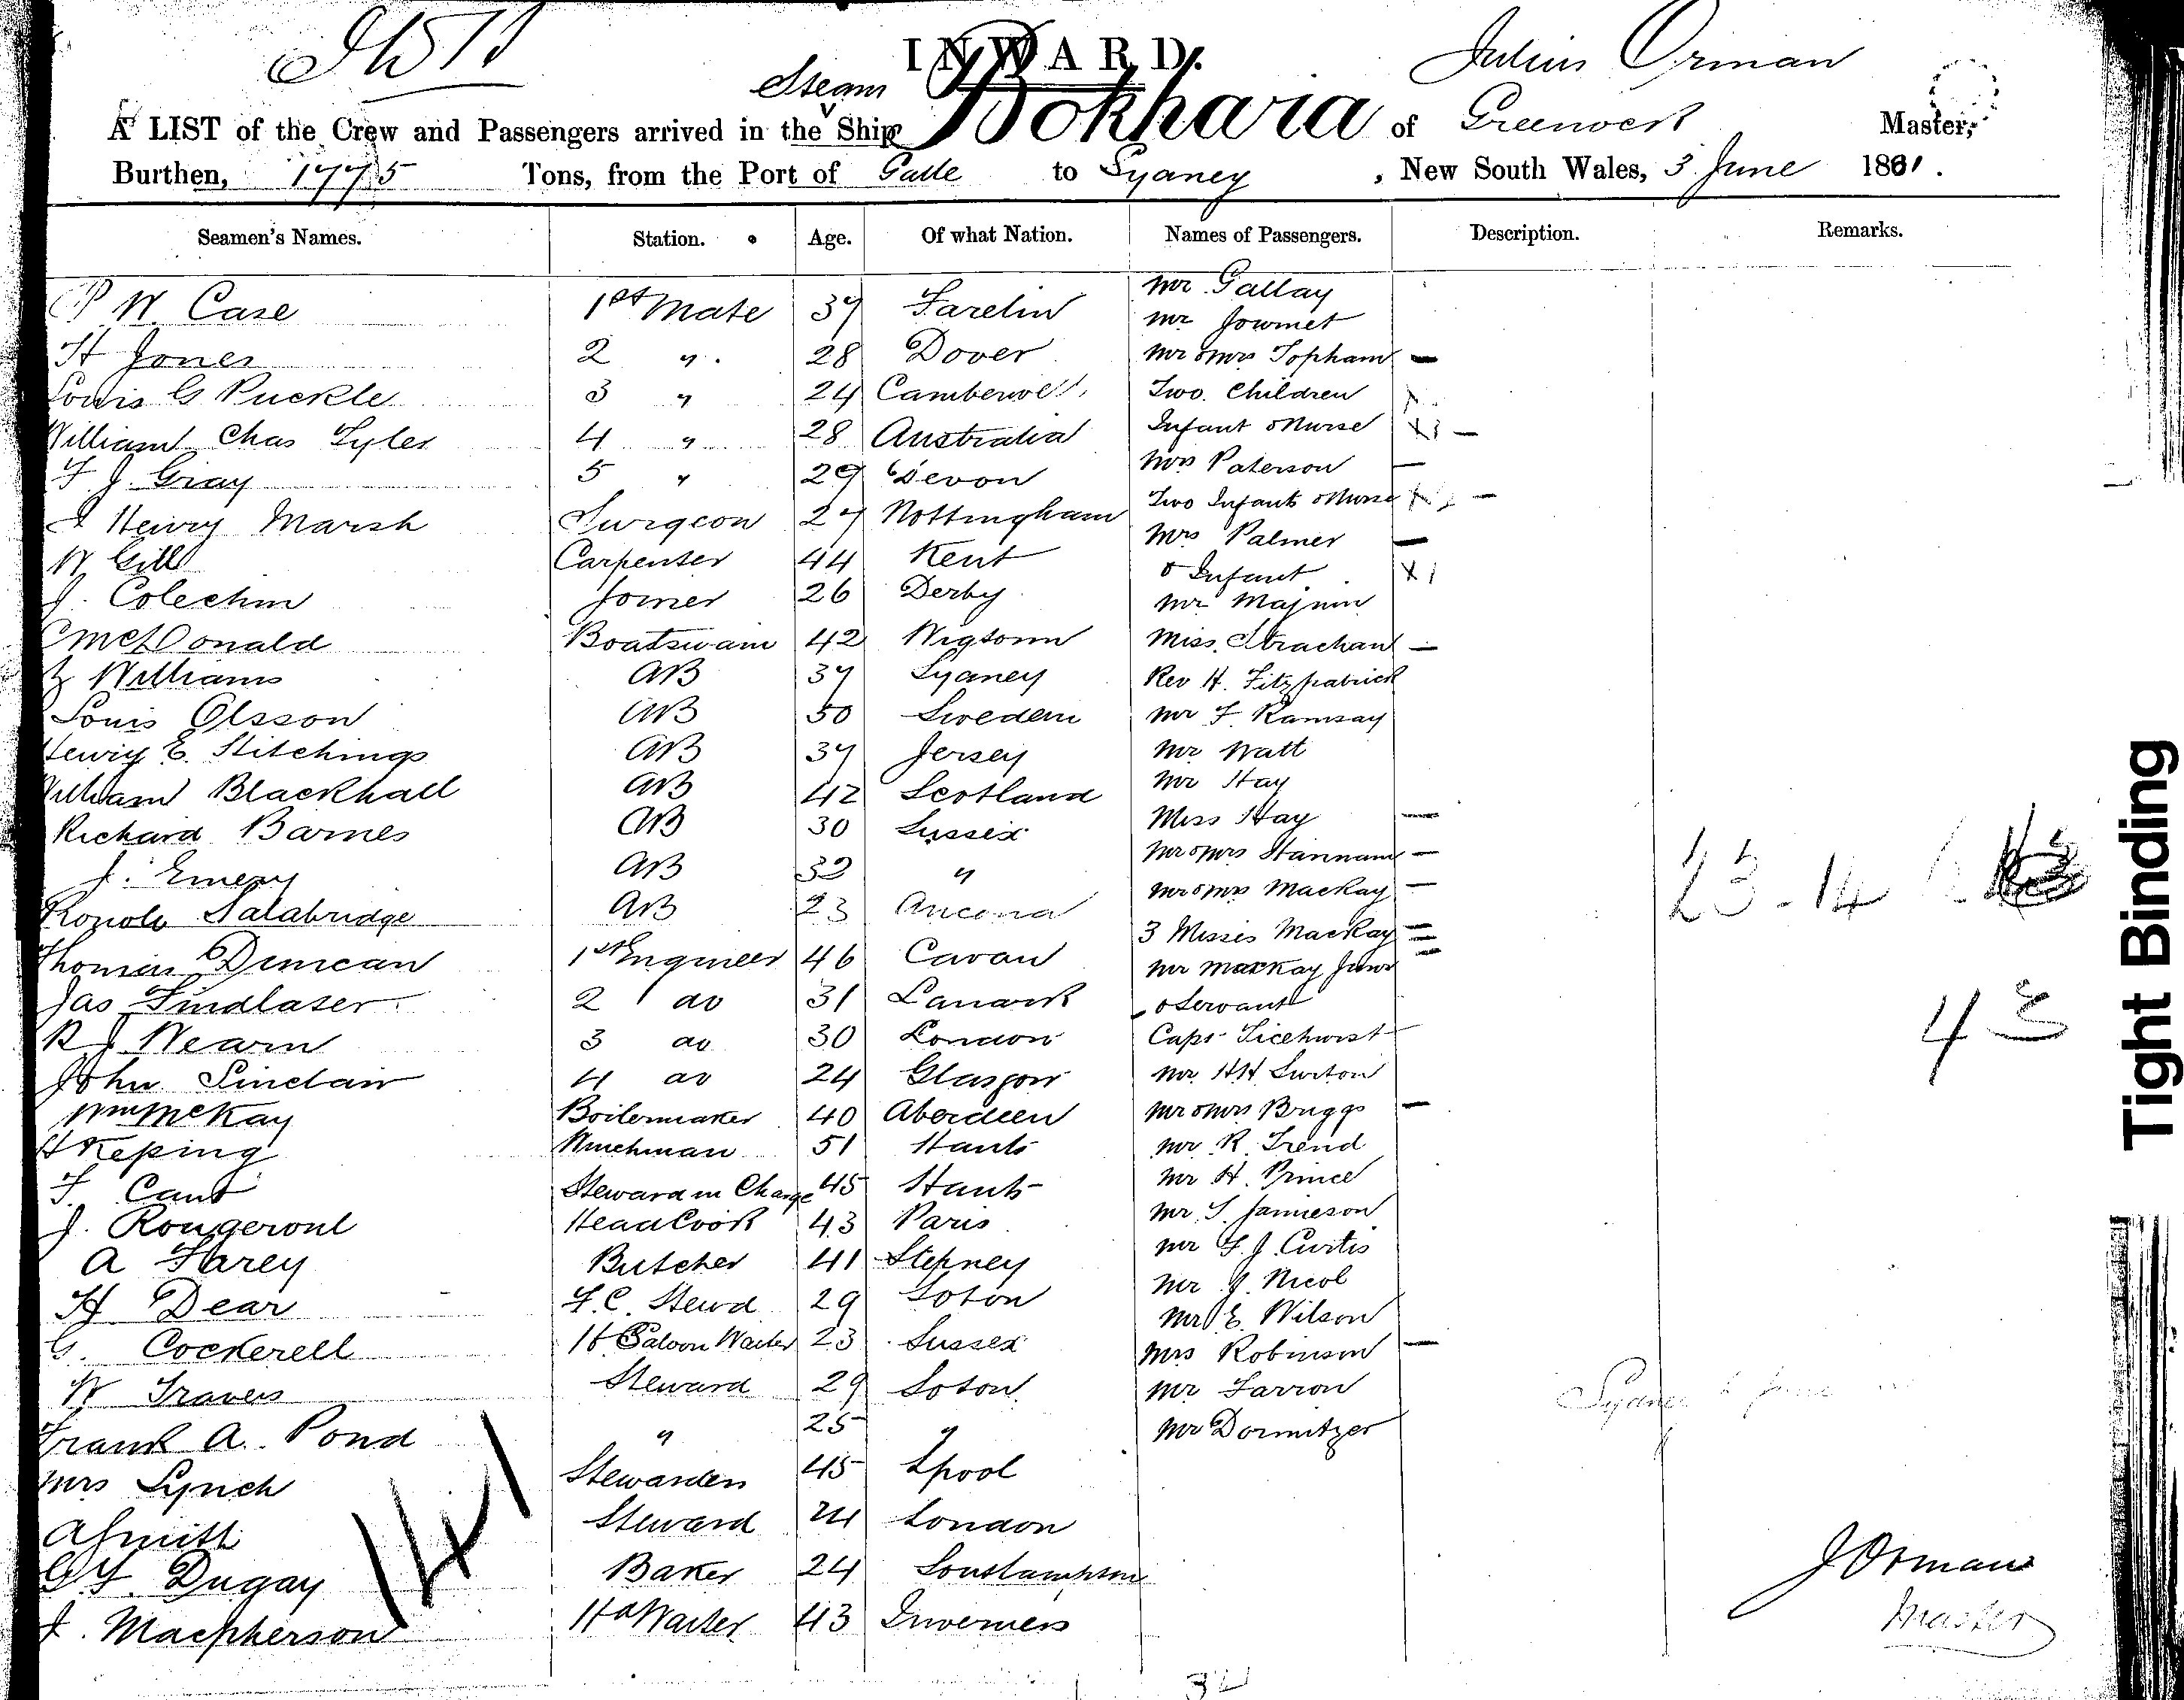 INWARD.
Julius Orman
Steam
A LIST of the Crew and Passengers arrived in the Ship Bokhara of Greenock Master,
Burthen, 1775 Tons, from the Port of Galle to Sydney, New South Wales, 3 June 1881.
Seamen's Names. Station. Age. Of what Nation. Names of Passengers. Description. Remarks.
P W Case 1st Mate 37
Mr Gallay
Mr Journet
H Jones 2 " 28 Dover Mr & Mrs Topham —
Louis G Puckle 3 " 24 Camberwell Two Children
William Chas Lyler 4 " 28 Australia Infant & Nurse —
F J. Gray 5 " 29 Devon Mrs Paterson —
Henry Marsh Surgeon 27 Nottingham Two Infants & Nurse —
W Gill Carpenter 44 Kent Mrs Palmer —
& Infant
J. Colechin Joiner 26 Derby Mr
McDonald Boatswain 42 Wigtown Miss Strachan —
Williams AB 37 Sydney Rev H. Fitzpatrick
Louis Olsson AB 50 Sweden Mr F Ramsay
Henry E. Stitchings AB 37 Jersey Mr Watt
William Blackhall AB 42 Scotland Mr Hay
Richard Barnes AB 30 Sussex Miss Hay —
J. Emery AB 32 " Mr & Mrs Hannam —
Salabridge AB 23 Ancona Mr & Mrs Mackay —
3 Misses Mackay
Thomas Duncan 1st Engineer 46 Cavan Mr Mackay Junr
Jas Findlater 2 do 31 Lanark & Servant
R J Nearn 3 do 30 London Capt Ticehurst
John Sinclair 4 do 24 Glasgow Mr HH Surton
Wm McKay Boilermaker 40 Aberdeen Mr & Mrs Briggs —
H Keping Winchman 51 Hants Mr R Trend
F. Cant Steward in Charge 45 Hants Mr H. Prince
J. Rougeront Head Cook 43 Paris Mr S. Jamieson
A Harey Butcher 41 Stepney Mr F. J. Curtis
H Dear F.C. Stewd 29 Soton Mr J. Nicol
Mr E. Wilson
G. Cockerell Saloon Waiter 23 Sussex Mrs Robinson —
W Travers Steward 29 Soton Mr Farron
Frank A. Pond " 25 " Mr Dormitzer
Mrs Lynch Stewardess 45 Lpool
A Smith Steward 24 London
Dugay Baker 24 Southampton
J. Macpherson Hd Waiter 43 Inverness
23.14
43
J Orman
Master
32
Tight Binding